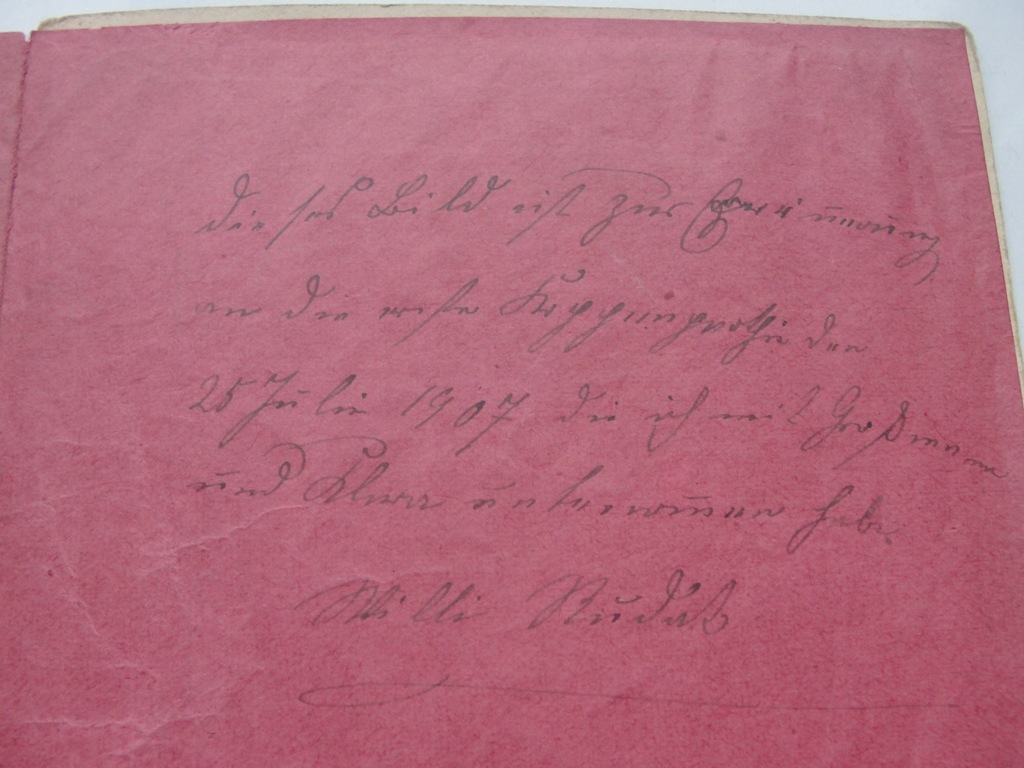 dieses Bild ist zur Erinnerung
an die erste Koppenparthie den
25 Julie 1907 die ich mit Großmama
und Klara unternommen habe
Willi Rudat